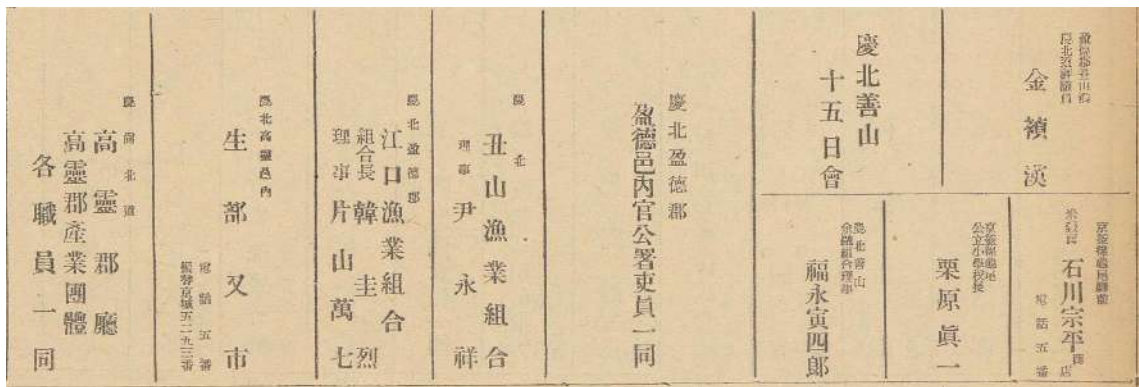 盈德郡丑山港
慶北道評議員
金禎漢
京釜線龜尾驛前
石川宗平商店
電話五番
京釜線龜尾
公立小學校長
栗原眞一
慶北善山
十五日會
慶北善山
金融組合理事
福永寅四郎
慶北盈德郡
盈德邑內官公署吏員一同
慶北
丑山漁業組合
理事 尹永祥
慶北盈德郡
江口漁業組合
組合長 韓圭烈
理事 片山萬七
慶北高靈邑內
生部又市
電話五番
振替京城五二九三番
慶尙北道
高靈郡廳
高靈郡產業團體
各職員一同